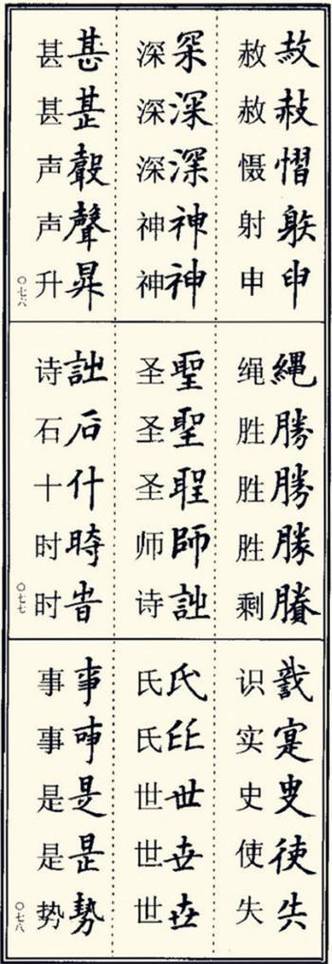 赦慴䠶申
赦赦慑射申
罙深深神神
深深深神神
甚甚聲昇
甚甚声声升
〇七六
縄勝勝勝賸
绳胜胜胜剩
聖聖師
圣圣圣师诗
石什時旹
诗石十时时
〇七七
寔叓使失
识实史使失
氏氏世世世
氏氏世世世
事事是是勢
事事是是势
〇七八